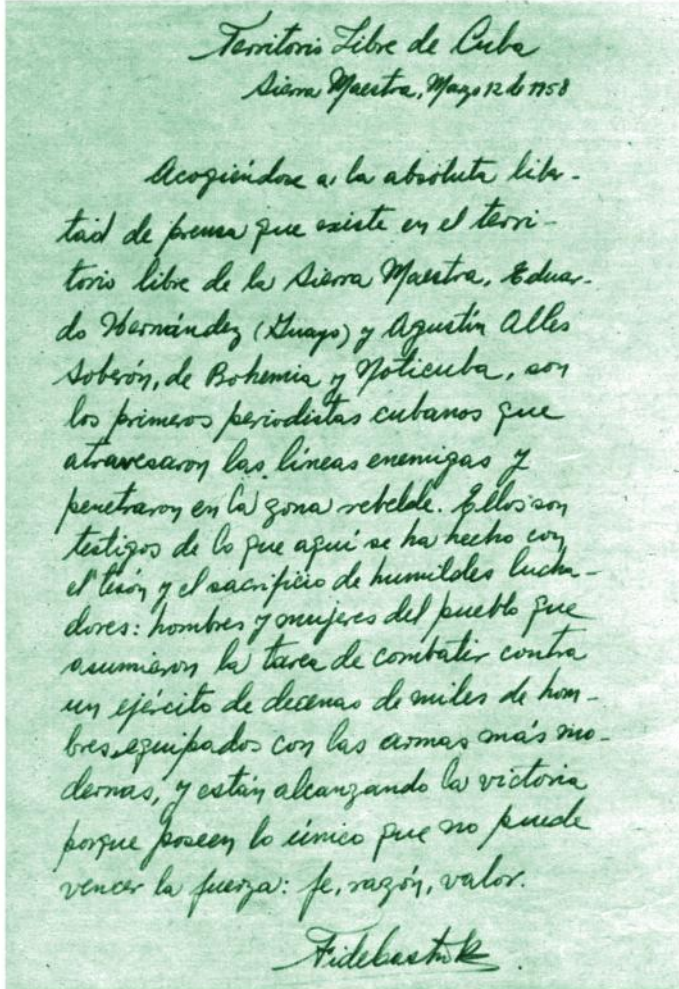 Territorio Libre de Cuba
Sierra Maestra, Marzo 12 de 1958
Acogiéndose a la absoluta liber-
tad de prensa que existe en el terri-
torio libre de la Sierra Maestra, Eduar-
do Hernández (Guayo) y Agustín Alles
Soberón, de Bohemia y Noticuba, son
los primeros periodistas cubanos que
atravesaron las líneas enemigas y
penetraron en la zona rebelde. Ellos son
testigos de lo que aquí se ha hecho con
el tesón y el sacrificio de humildes lucha-
dores: hombres y mujeres del pueblo que
asumieron la tarea de combatir contra
un ejército de decenas de miles de hom-
bres, equipados con las armas más mo-
dernas, y están alcanzando la victoria
porque poseen lo único que no puede
vencer la fuerza: fe, razón, valor.
Fidel Castro R